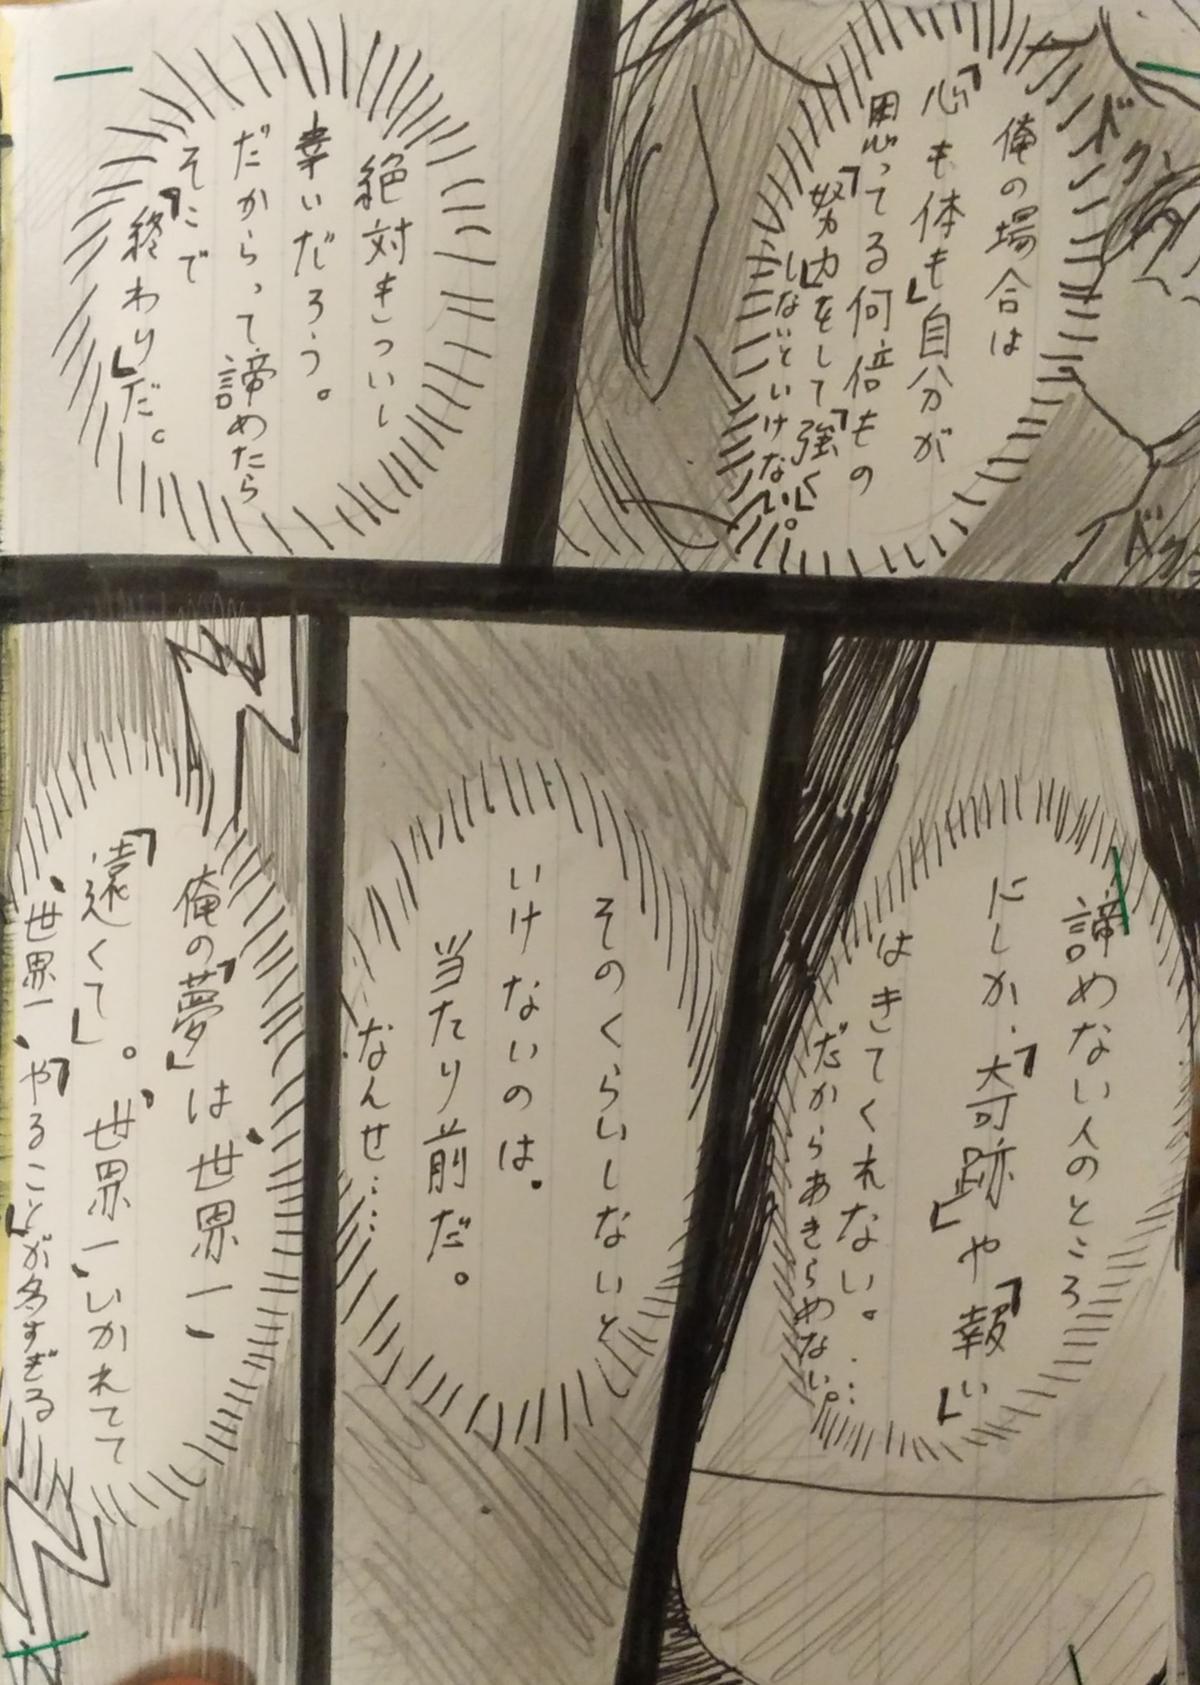 俺の場合は
「心も体も」自分が
思ってる何倍もの
「努力」をして「強く」
しないといけない。
ドクン
ドクン
絶対きついし
辛いだろう。
だからって諦めたら
そこで
「終わり」だ。
諦めない人のところ
にしか、「奇跡」や「報い」
はきてくれない。……
だからあきらめない。
そのくらいしないと
いけないのは、
当たり前だ。
なんせ……
俺の「夢」は、世界一、
「遠くて」。、世界一、いかれてて
、世界一、「やること」が多すぎる